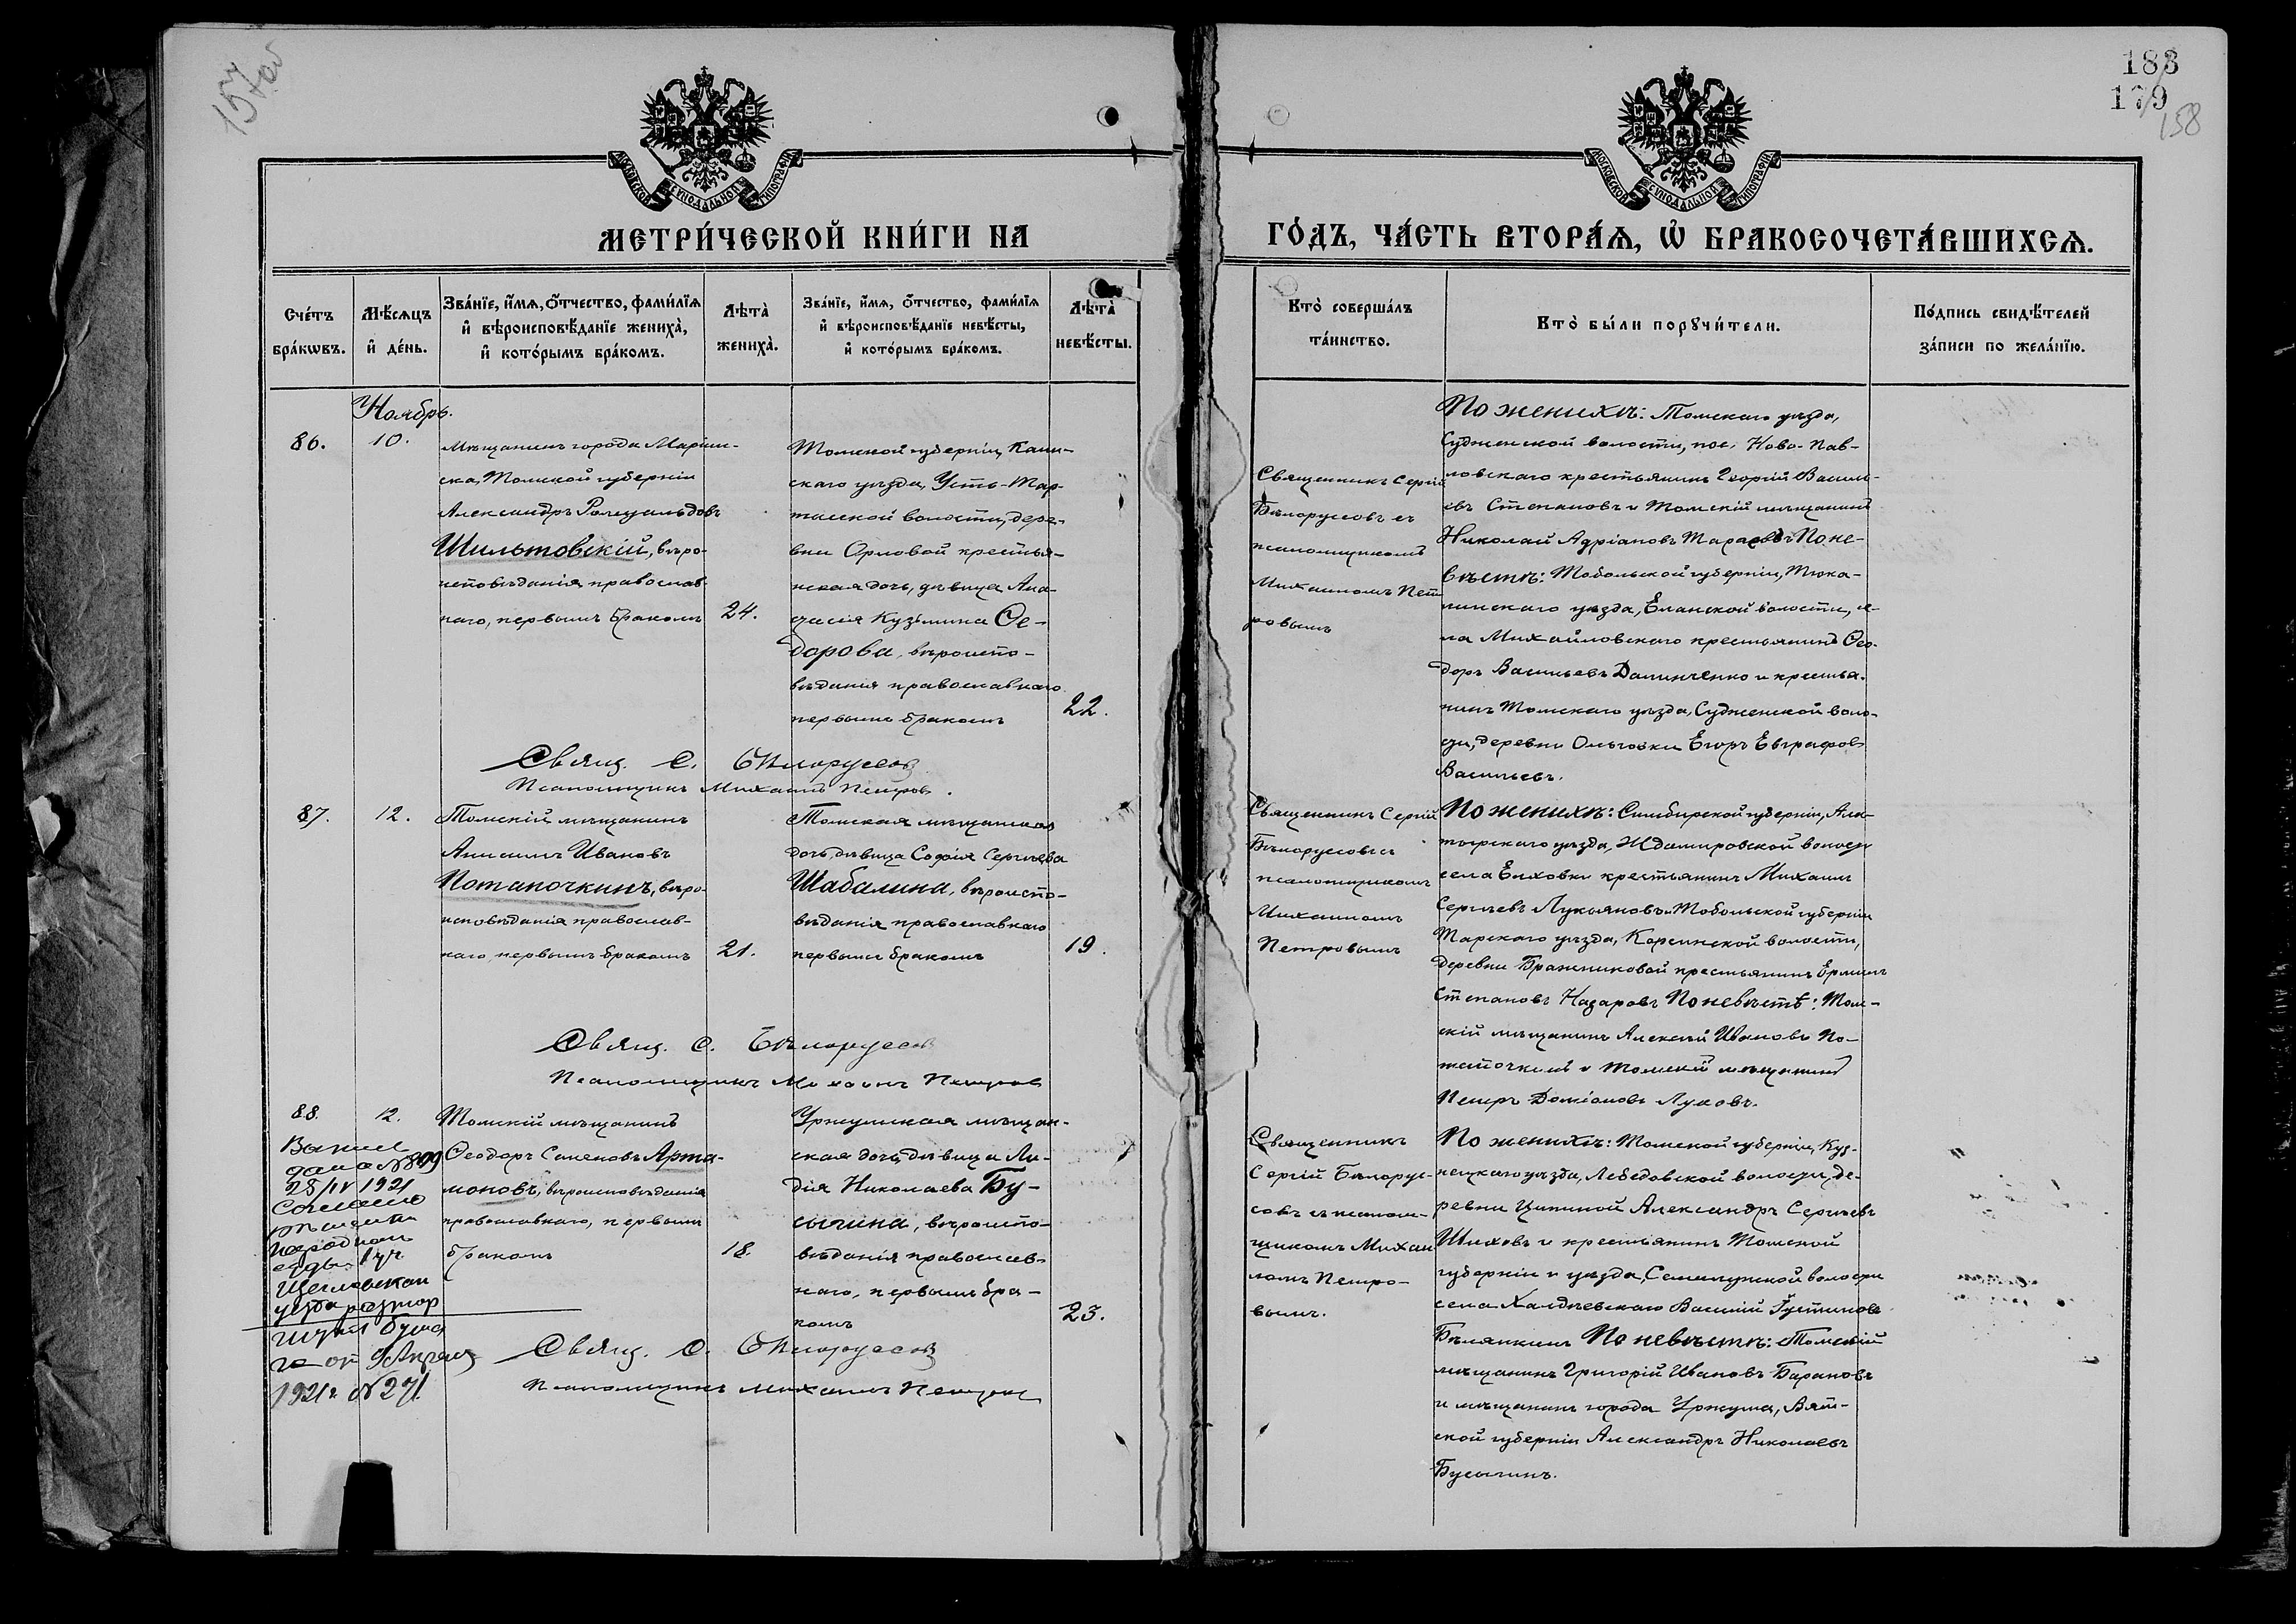 157об
183
179
158
МОСКОВСКОЙ СѴНОДАЛЬНОЙ ТИПОГРАФІИ
МОСКОВСКОЙ СѴНОДАЛЬНОЙ ТИПОГРАФІИ
МЕТРИ́ЧЕСКОЙ КНИ́ГИ НА
ГО́ДЪ, ЧА́СТЬ ВТОРА́Ѧ, Ѽ БРАКОСОЧЕТА́ВШИХСѦ.
Сче́тъ
бра́кѡвъ.
Мѣ́сѧцъ
и҆ де́нь.
Зва́нїе, и҆́мѧ, ѻ҆́тчество, фами́лїѧ
и҆ вѣроисповѣ́данїе жениха̀,
и҆ кото́рымъ бра́комъ.
Лѣта̀
жениха̀.
Зва́нїе, и҆́мѧ, ѻ҆́тчество, фами́лїѧ
и҆ вѣроисповѣ́данїе невѣ́сты,
и҆ кото́рымъ бра́комъ.
Лѣта̀
невѣ́сты.
Кто̀ соверша́лъ
та́инство.
Кто̀ бы́ли порꙋчи́тели.
По́дпись свидѣ́телей
за́писи по жела́нїю.
Ноябрь.
86.
10.
Мѣщанинъ города Маріин-
ска, Томской губерніи
Александръ Ромуальдовъ
Шильтовскій, вѣро-
исповѣданія православ-
наго, первымъ бракомъ
24.
Томской губерніи, Каин-
скаго уѣзда, Усть-Тар-
тасской волости, дере-
вни Орловой крестья-
нская дочь, дѣвица Ана-
стасія Кузьмина Ѳе-
дорова, вѣроиспо-
вѣданія православнаго
первымъ бракомъ
22.
Священникъ Сергій
Бѣлоруссовъ съ
псаломщикомъ
Михаиломъ Пет-
ровымъ
По женихѣ: Томскаго уѣзда,
Судженской волости, пос. Ново-Пав-
ловскаго крестьянинъ Георгій Василь-
евъ Степановъ и Томскій мѣщанинъ
Николай Адріановъ Тарасовъ По не-
вѣстѣ: Тобольской губерніи, Тюка-
линскаго уѣзда, Еланской волости, се-
ла Михайловскаго крестьянинъ Ѳео-
доръ Васильевъ Далинченко и крестья-
нинъ Томскаго уѣзда, Судженской воло-
сти, деревни Ольговки Егоръ Евграфовъ
Васильевъ.
Свящ. С. Бѣлоруссовъ
Псаломщикъ Михаилъ Петровъ.
87.
12.
Томскій мѣщанинъ
Анисимъ Ивановъ
Потапочкинъ, вѣро-
исповѣданія православ-
наго, первымъ бракомъ
21.
Томская мѣщанская
дочь, дѣвица Софія Сергѣева
Шабалина, вѣроиспо-
вѣданія православнаго
первымъ бракомъ
19.
Священникъ Сергій
Бѣлоруссовъ съ
псаломщикомъ
Михаиломъ
Петровымъ
По женихѣ: Симбирской губерніи, Ала-
тырскаго уѣзда, Ждамировской волости
села Елховки крестьянинъ Михаилъ
Сергѣевъ Лукьяновъ и Тобольской губерніи
Тарскаго уѣзда, Карсинской волости,
деревни Бражниковой крестьянинъ Ермилъ
Степановъ Назаровъ По невѣстѣ: Том-
скій мѣщанинъ Алексѣй Ивановъ По-
тапочкинъ и томскій мѣщанинъ
Петръ Доміановъ Луковъ.
Свящ. С. Бѣлоруссовъ
Псаломщикъ Михаилъ Петровъ
88.
12.
Томскій мѣщанинъ
Ѳеодоръ Симеоновъ Арта-
моновъ, вѣроисповѣданія
православнаго, первымъ
бракомъ
18.
Уржумская мѣщан-
ская дочь, дѣвица Ли-
дія Николаева Бу-
сыгина, вѣроиспо-
вѣданія православ-
наго, первымъ бра-
комъ
23.
дана №899
28/IV 1921
народном
суда 1 уч.
Щегловскаго
уѣзда расторг
от 9 Апреля
1921 г № 271.
Священникъ
Сергій Бѣлорус-
совъ съ псалом-
щикомъ Михаи-
ломъ Петро-
вымъ.
По женихѣ: Томской губерніи, Куз-
нецкаго уѣзда, Лебедовской волости, де-
ревни Цыпиной Александръ Сергѣевъ
Шиховъ и крестьянинъ Томской
губерніи и уѣзда, Семилужской волости
села Халдѣевскаго Василій Густиновъ
Бѣлянкинъ По невѣстѣ: Томскій
мѣщанинъ Григорій Ивановъ Барановъ
и мѣщанинъ города Уржума, Вят-
ской губерніи Александръ Николаевъ
Бусыгинъ.
Свящ. С. Бѣлоруссовъ
Псаломщикъ Михаилъ Петровъ